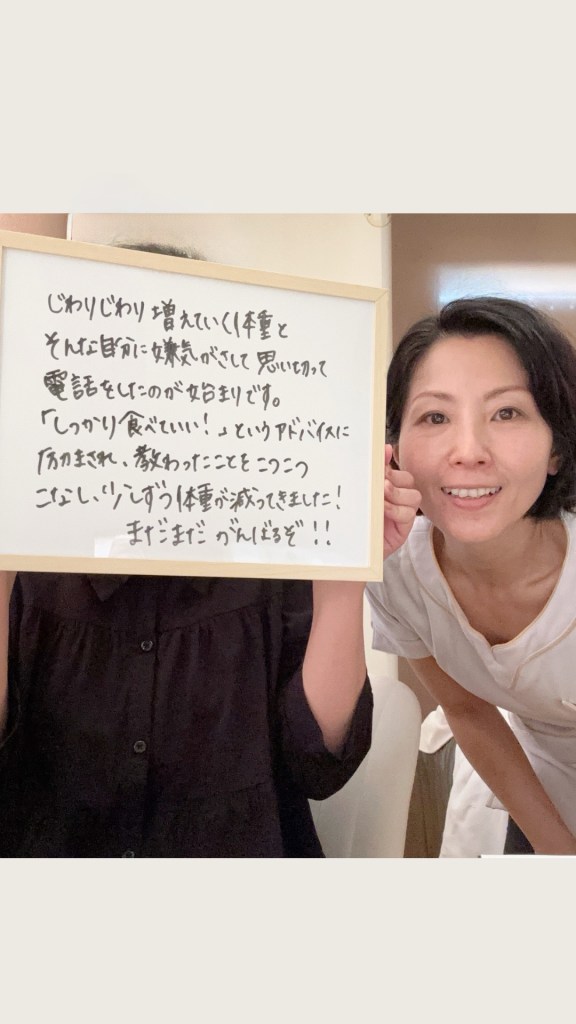 じわりじわり増えていく体重と
そんな自分に嫌気がさして思い切って
電話をしたのが始まりです。
「しっかり食べていい！」というアドバイスに
励まされ、教わったことをコツコツ
こなし、少しずつ体重が減ってきました！
まだまだがんばるぞ！！